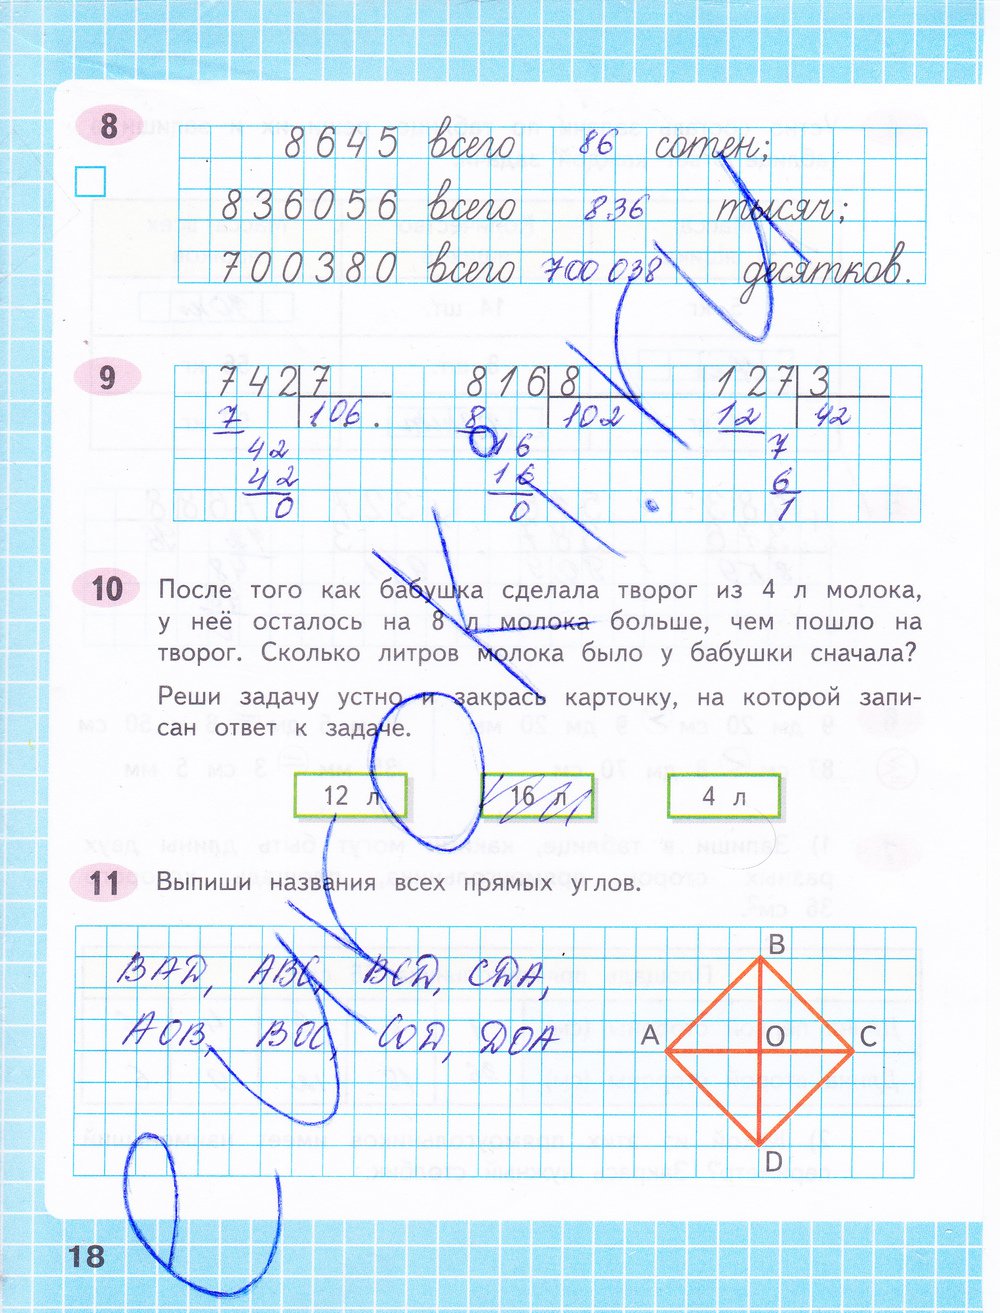 8
8645 всего 86 сотен;
836056 всего 836 тысяч;
700380 всего 700 038 десятков.
9
742 7 816 8 127 3
7 106. 8 102 12 42
42 16 7
42 16 6
0 0 1
10 После того как бабушка сделала творог из 4 л молока,
у неё осталось на 8 л молока больше, чем пошло на
творог. Сколько литров молока было у бабушки сначала?
Реши задачу устно и закрась карточку, на которой запи-
сан ответ к задаче.
12 л 16 л 4 л
11 Выпиши названия всех прямых углов.
B
BAD, ABC, BCD, CDA,
AOB, BOC, COD, DOA
A O C
D
18